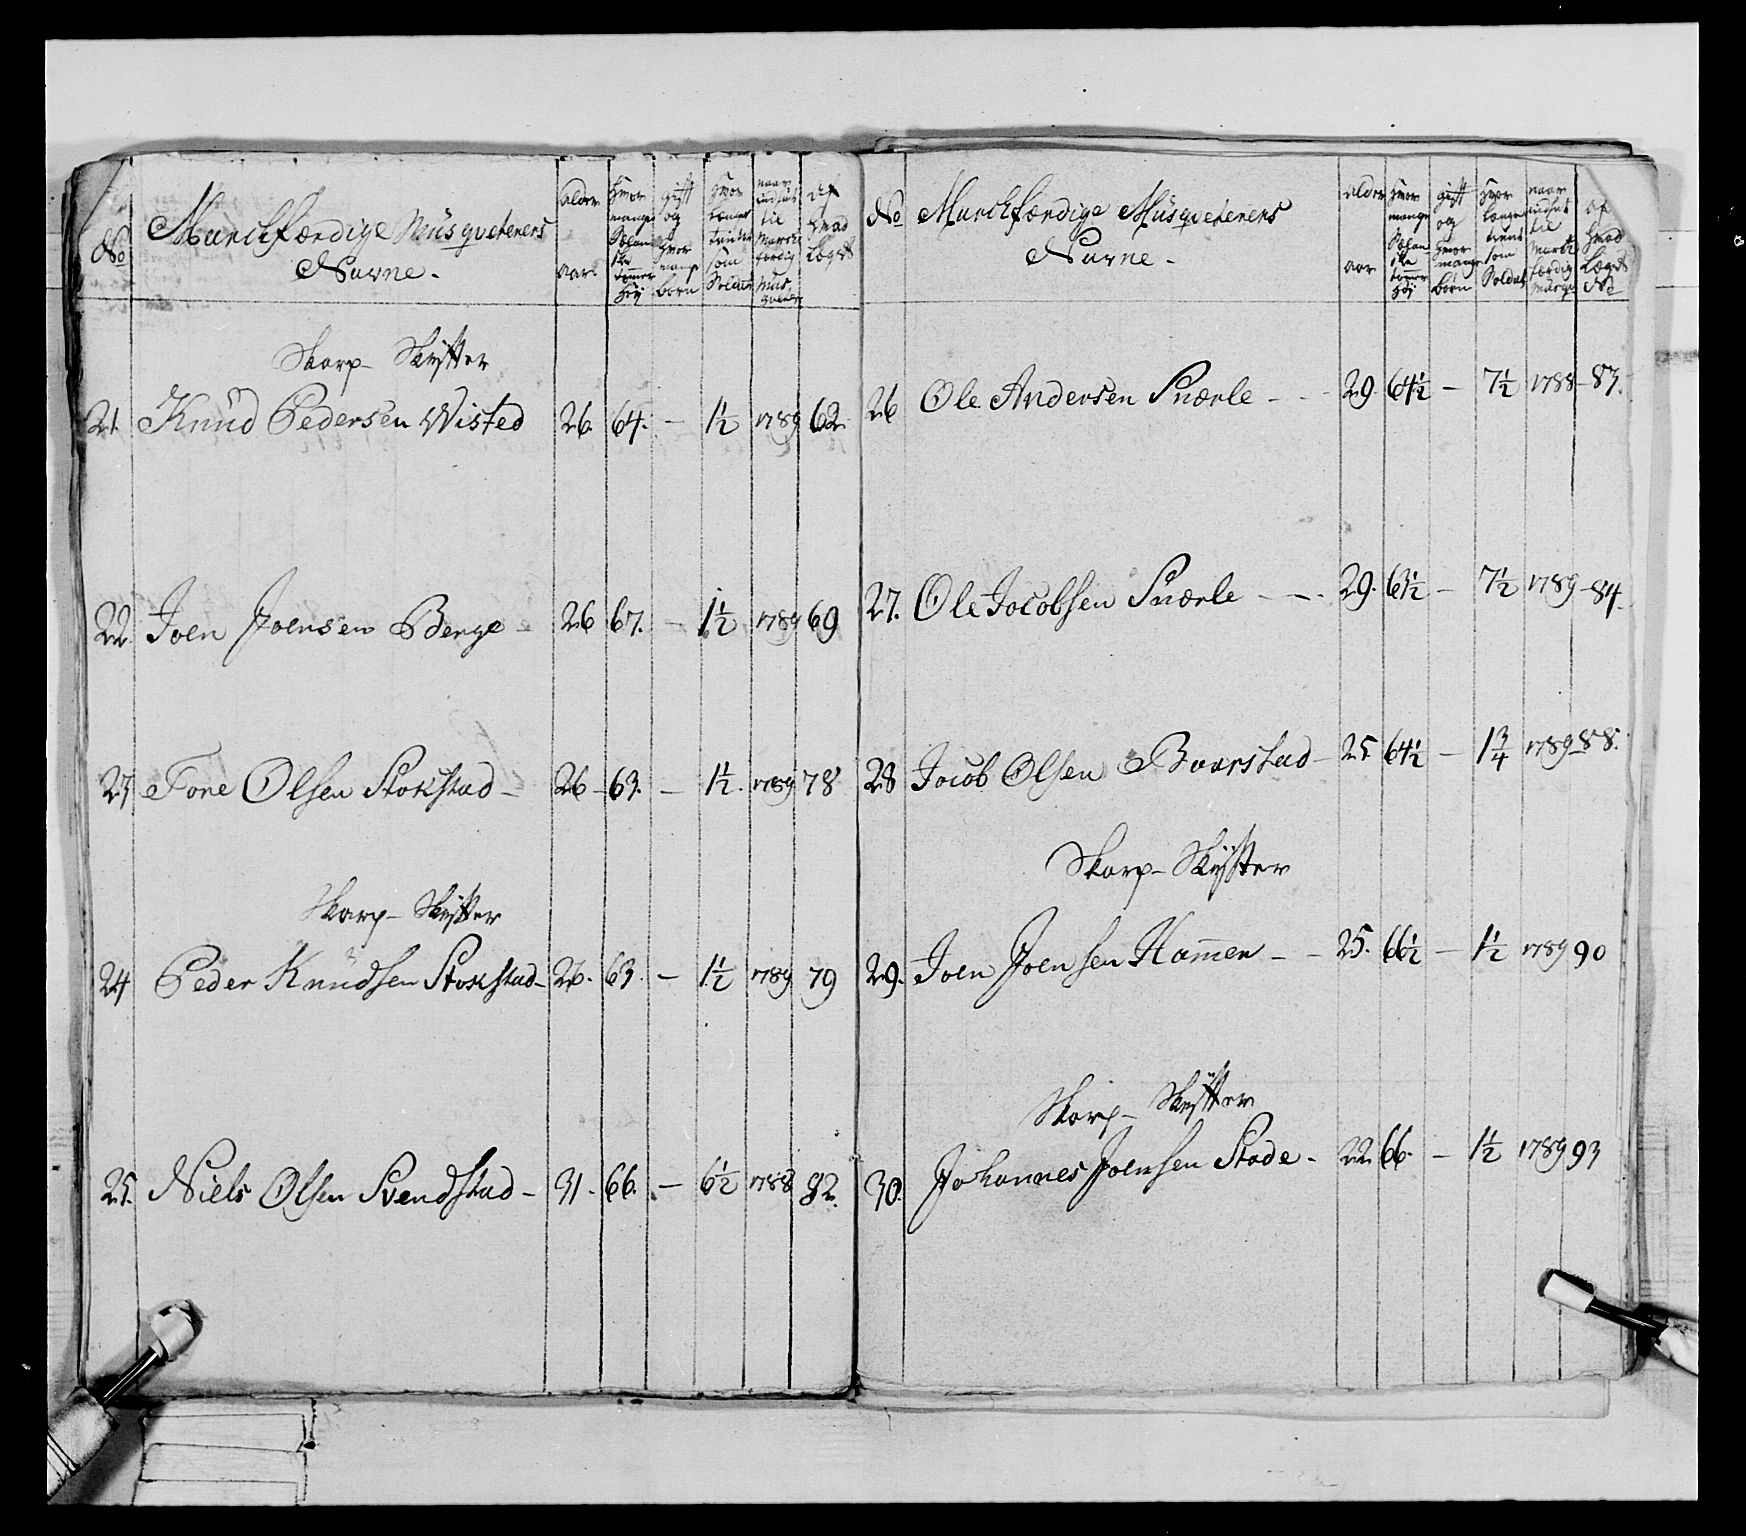 No
Marchfærdige Musqveterers
Navne.
alder
aar.
Hvor mange Sælanske tommer Høy
gift og Hvor mange børn
Hvor længe tient som Soldat
naar indsat til Marchfærdig Musqveter
Af Hvad Lægd
Skarp- Skytter
21 Knud Pedersen Wisted 26. 64. - 1½ 1789 62.
22. Joen Joensen Berge - 26 67. - 1½ 1789 69
23 Tore Olsen Stokstad - 26 - 63. - 1½. 1789 78
Skarp- Skytter
24 Peder Knudsen Stokstad - 26. 63. - 1½ 1789 79
25. Niels Olsen Svendstad - 31. 66. - 6½ 1788 82.
No
Marchfærdige Musqveterers
Navne -
alder
aar
Hvor mange Sælanske tommer Høy
gift og Hvor mange børn
Hvor længe tient som Soldat
naar indsat til Marchfærdig Musqv
af Hvad Lægd No
26 Ole Andersen Snærle - - - 29. 64½ - 7½ 1788 - 83.
27. Ole Jacobsen Snærle - - - 29. 63½ - 7½ 1789 - 84.
28 Jacob Olsen Baarstad - 25 64½ - 1¾ 1789 - 88.
Skarp- Skÿtter
29. Joen Joensen Hammen - - 25. 66½ - 1½ 1789 90
Skarp- Skÿtter
30. Johannes Joensen Stade - 22 66. - 1½ 1789 93